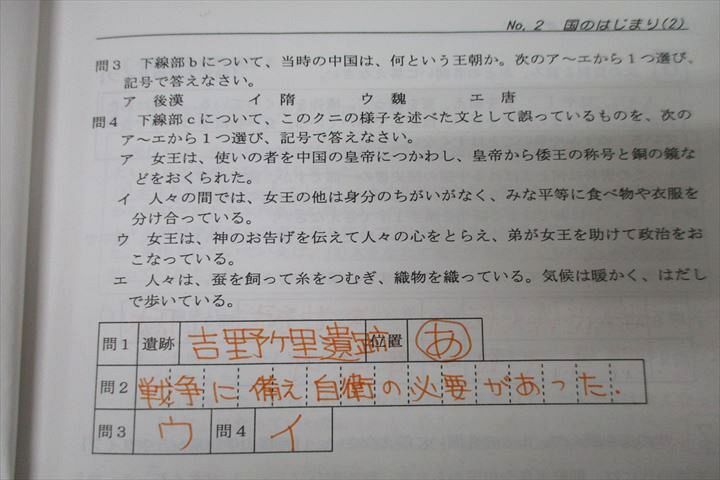 No. 2 国のはじまり(2)
問3 下線部bについて、当時の中国は、何という王朝か。次のア～エから1つ選び、
記号で答えなさい。
ア 後漢 イ 隋 ウ 魏 エ 唐
問4 下線部cについて、このクニの様子を述べた文として誤っているものを、次の
ア～エから1つ選び、記号で答えなさい。
ア 女王は、使いの者を中国の皇帝につかわし、皇帝から倭王の称号と銅の鏡な
どをおくられた。
イ 人々の間では、女王の他は身分のちがいがなく、みな平等に食べ物や衣服を
分け合っている。
ウ 女王は、神のお告げを伝えて人々の心をとらえ、弟が女王を助けて政治をお
こなっている。
エ 人々は、蚕を飼って糸をつむぎ、織物を織っている。気候は暖かく、はだし
で歩いている。
問1 遺跡 吉野ヶ里遺跡 位置 あ
問2 戦争に備え自衛の必要があった.
問3 ウ 問4 イ